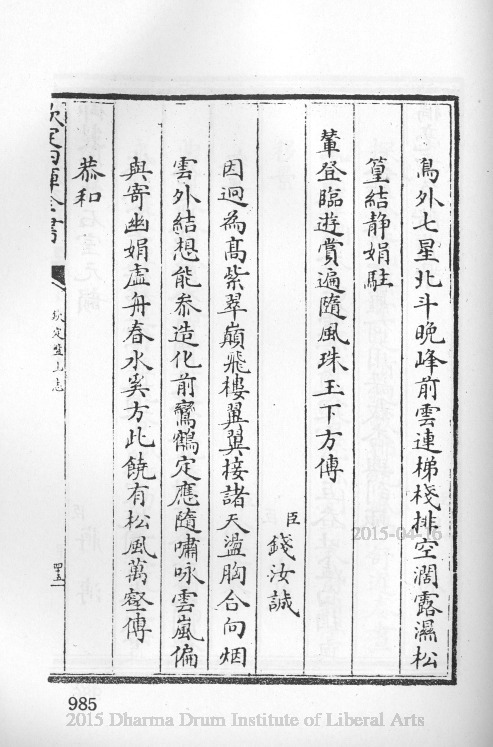 鳥外七星北斗晚峰前雲連梯棧排空濶露濕松
篁結静娟駐
輦登臨遊賞遍隨風珠玉下方傳
臣錢汝誠
因迥為髙紫翠巔飛樓翼翼接諸天盪胸合向烟
雲外結想能叅造化前鸞鶴定應隨嘯咏雲嵐偏
與寄幽娟虛舟春水奚方此饒有松風萬壑傳
恭和
欽定四庫全書
欽定盤山志
2015-04-16
985
2015 Dharma Drum Institute of Liberal Arts